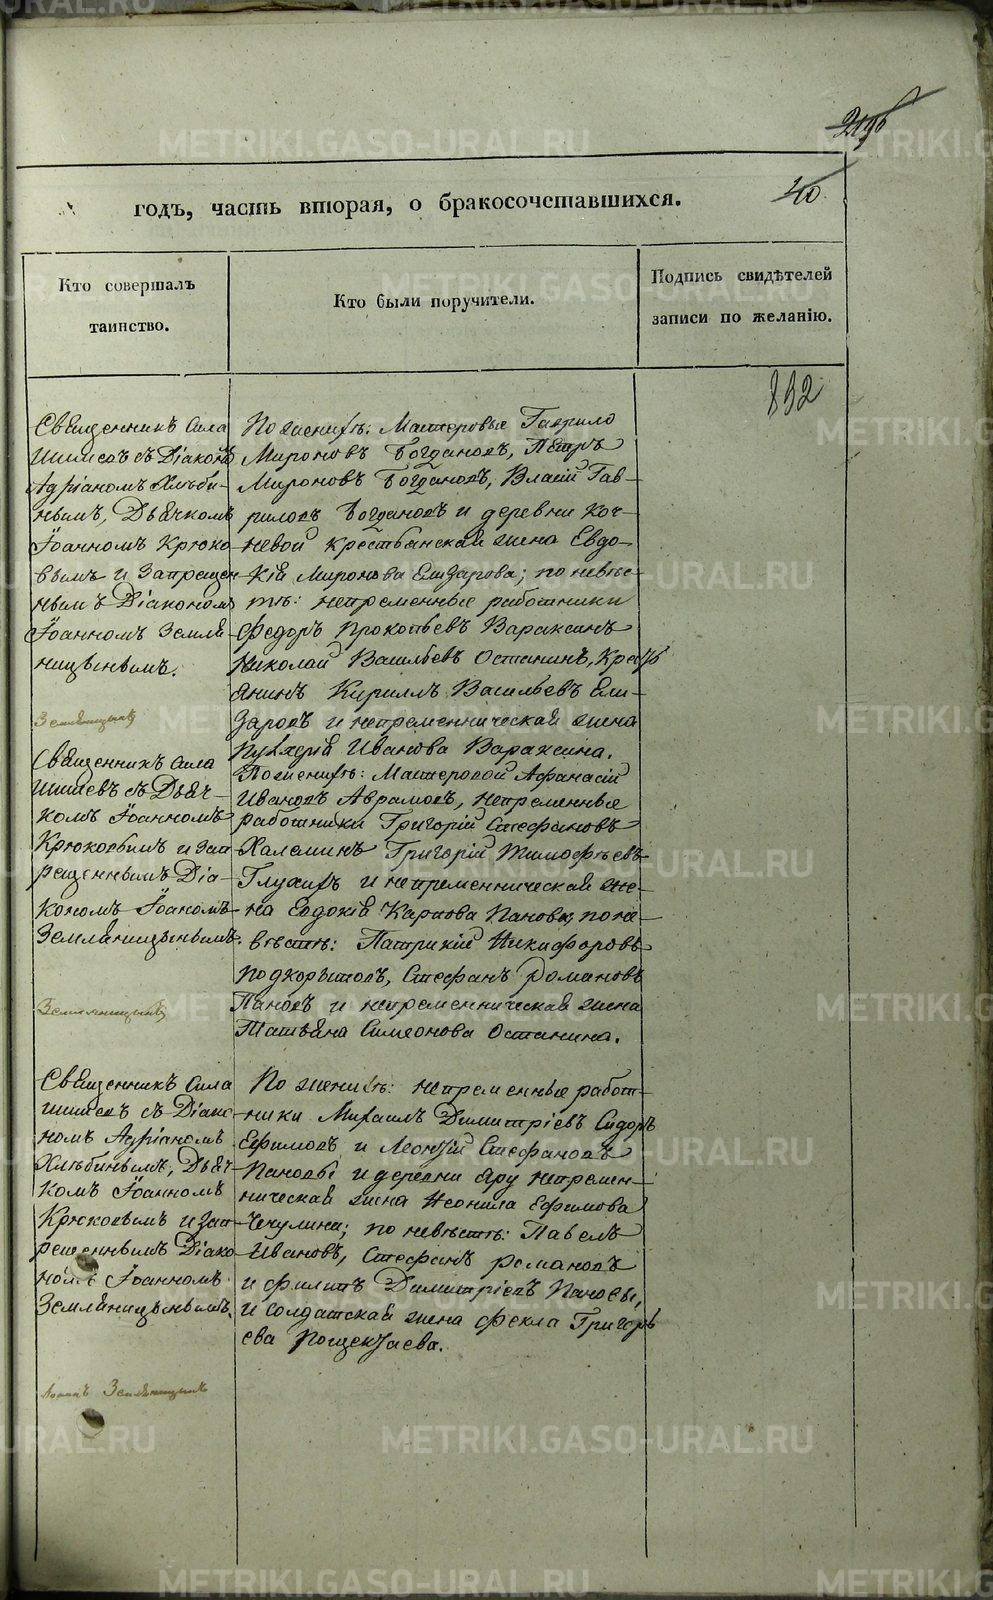 годъ, часть вторая, о бракосочетавшихся.
Кто совершалъ
таинство.
Кто были поручители.
Подпись свидѣтелей
записи по желанію.
892
Священникъ Сила
съ Діакономъ
Адріаномъ Хлѣби-
нымъ, Дьячкомъ
Іоанномъ Крюко-
вымъ и запрещен-
нымъ Діакономъ
Іоанномъ Земля-
ницынымъ.
Земляницынъ
По женихѣ: Мастеровые Гаврило
Мироновъ Богдановъ, Петръ
Мироновъ Богдановъ, Власій Гав-
риловъ Богдановъ и деревни Коч-
невой крестьянская жена Евдо-
кія Миронова Елизарова; по невѣс-
тѣ: непременные работники
Федоръ Прокопьевъ Вараксинъ
Николай Васильевъ Останинъ, Крест-
янинъ Кириллъ Васильевъ Ели-
заровъ и непременническая жена
Иванова Вараксина.
Священникъ Сила
съ Дьяч-
комъ Іоанномъ
Крюковымъ и зап-
рещеннымъ Діа-
кономъ Іоаномъ
Земляницынымъ.
Земляницынъ
По женихѣ: Мастеровой Афанасій
Ивановъ Аврамовъ, непременные
работники Григорій Стефановъ
Халеминъ Григорій Тимофѣевъ
Глухихъ и непременническая же-
на Евдокія Карпова Панова, по не-
вѣстѣ: Патрикій Никифоровъ
Подкорытовъ, Стефанъ Романовъ
Пановъ и непременническая жена
Татьяна Симеонова Останина.
Священникъ Сила
съ Діако-
номъ Адріаномъ
Хлѣбинымъ, Дьяч-
комъ Іоанномъ
Крюковымъ и зап-
рещеннымъ Діако-
номъ Іоанномъ
Земляницынымъ.
Іоаннъ Земляницынъ
По женихѣ: непременные работ-
ники Михаилъ Димитріевъ Сидоръ
Ефимовъ и Леонтій Стефановъ
Пановы и деревни Яру непремен-
ническая жена Неонила Ефимова
Чечулина; по невѣстѣ: Павелъ
Ивановъ, Стефанъ Романовъ
и Филипъ Димитріевъ Пановы,
и солдатская жена Фекла Григорь
ева Пощекчаева.
METRIKI.GASO-URAL.RU